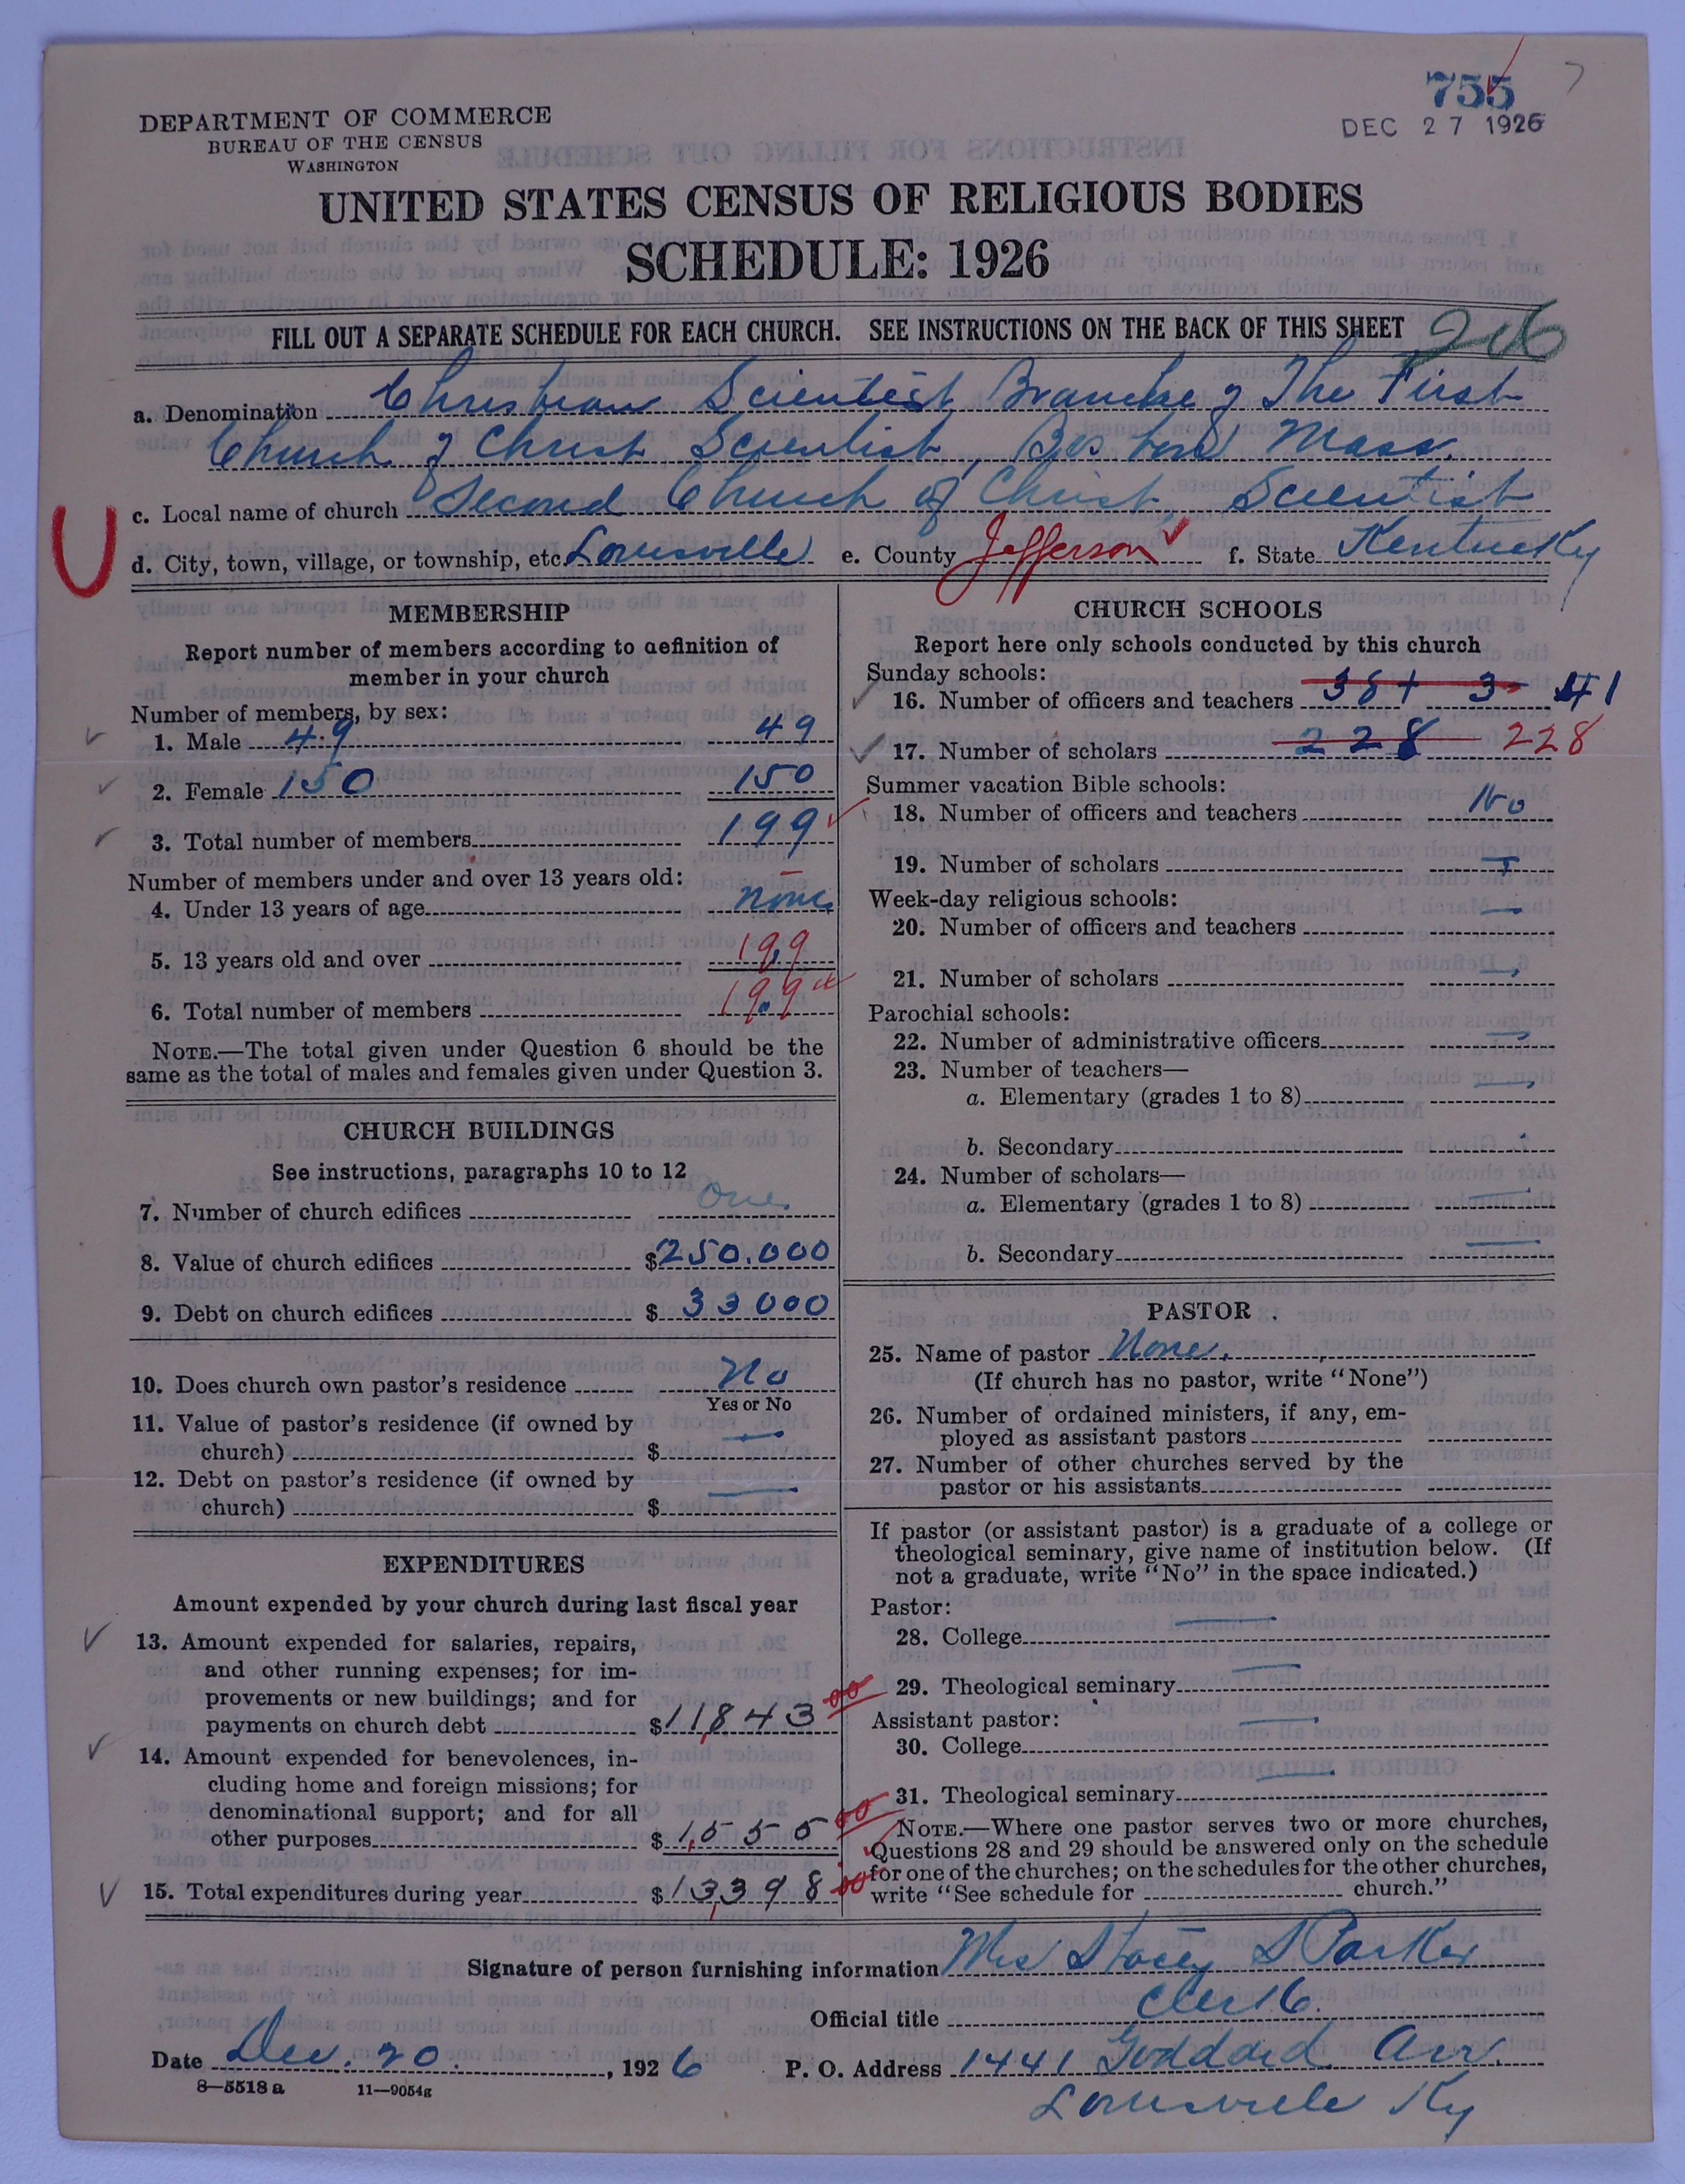 755
DEC 27 1926
DEPARTMENT OF COMMERCE
BUREAU OF THE CENSUS
WASHINGTON
UNITED STATES CENSUS OF RELIGIOUS BODIES
SCHEDULE: 1926
FILL OUT A SEPARATE SCHEDULE FOR EACH CHURCH. SEE INSTRUCTIONS ON THE BACK OF THIS SHEET 206
a. Denomination Christian Scientist, Branch of The First
Church of Christ Scientist, Boston Mass.
c. Local name of church Second Church of Christ, Scientist
d. City, town, village, or township, etc. Louisville e. County Jefferson f. State Kentucky
U
MEMBERSHIP
Report number of members according to definition of
member in your church
Number of members, by sex:
1. Male 49 49
2. Female 150 150
3. Total number of members 199
Number of members under and over 13 years old:
4. Under 13 years of age none
5. 13 years old and over 199
6. Total number of members 199
NOTE.—The total given under Question 6 should be the
same as the total of males and females given under Question 3.
CHURCH BUILDINGS
See instructions, paragraphs 10 to 12
7. Number of church edifices one
8. Value of church edifices $250.000
9. Debt on church edifices $33000
10. Does church own pastor's residence No
Yes or No
11. Value of pastor's residence (if owned by
church) $ —
12. Debt on pastor's residence (if owned by
church) $ —
EXPENDITURES
Amount expended by your church during last fiscal year
13. Amount expended for salaries, repairs,
and other running expenses; for im-
provements or new buildings; and for
payments on church debt $11,843 00
14. Amount expended for benevolences, in-
cluding home and foreign missions; for
denominational support; and for all
other purposes $1,555 00
15. Total expenditures during year $13,398 00
CHURCH SCHOOLS
Report here only schools conducted by this church
Sunday schools:
16. Number of officers and teachers 38 + 3 41
17. Number of scholars 228 228
Summer vacation Bible schools:
18. Number of officers and teachers No
19. Number of scholars —
Week-day religious schools:
20. Number of officers and teachers —
21. Number of scholars —
Parochial schools:
22. Number of administrative officers —
23. Number of teachers—
a. Elementary (grades 1 to 8) —
b. Secondary
24. Number of scholars—
a. Elementary (grades 1 to 8) —
b. Secondary —
PASTOR
25. Name of pastor None.
(If church has no pastor, write "None")
26. Number of ordained ministers, if any, em-
ployed as assistant pastors
27. Number of other churches served by the
pastor or his assistants
If pastor (or assistant pastor) is a graduate of a college or
theological seminary, give name of institution below. (If
not a graduate, write "No" in the space indicated.)
Pastor:
28. College —
29. Theological seminary —
Assistant pastor:
30. College —
31. Theological seminary —
NOTE.—Where one pastor serves two or more churches,
Questions 28 and 29 should be answered only on the schedule
for one of the churches; on the schedules for the other churches,
write "See schedule for church."
Signature of person furnishing information Mrs Stacey S Parker
Official title Clerk.
Date Dec. 20. , 1926 P. O. Address 1441 Goddard Ave.
8—5518 a 11—9054g
Louisville Ky